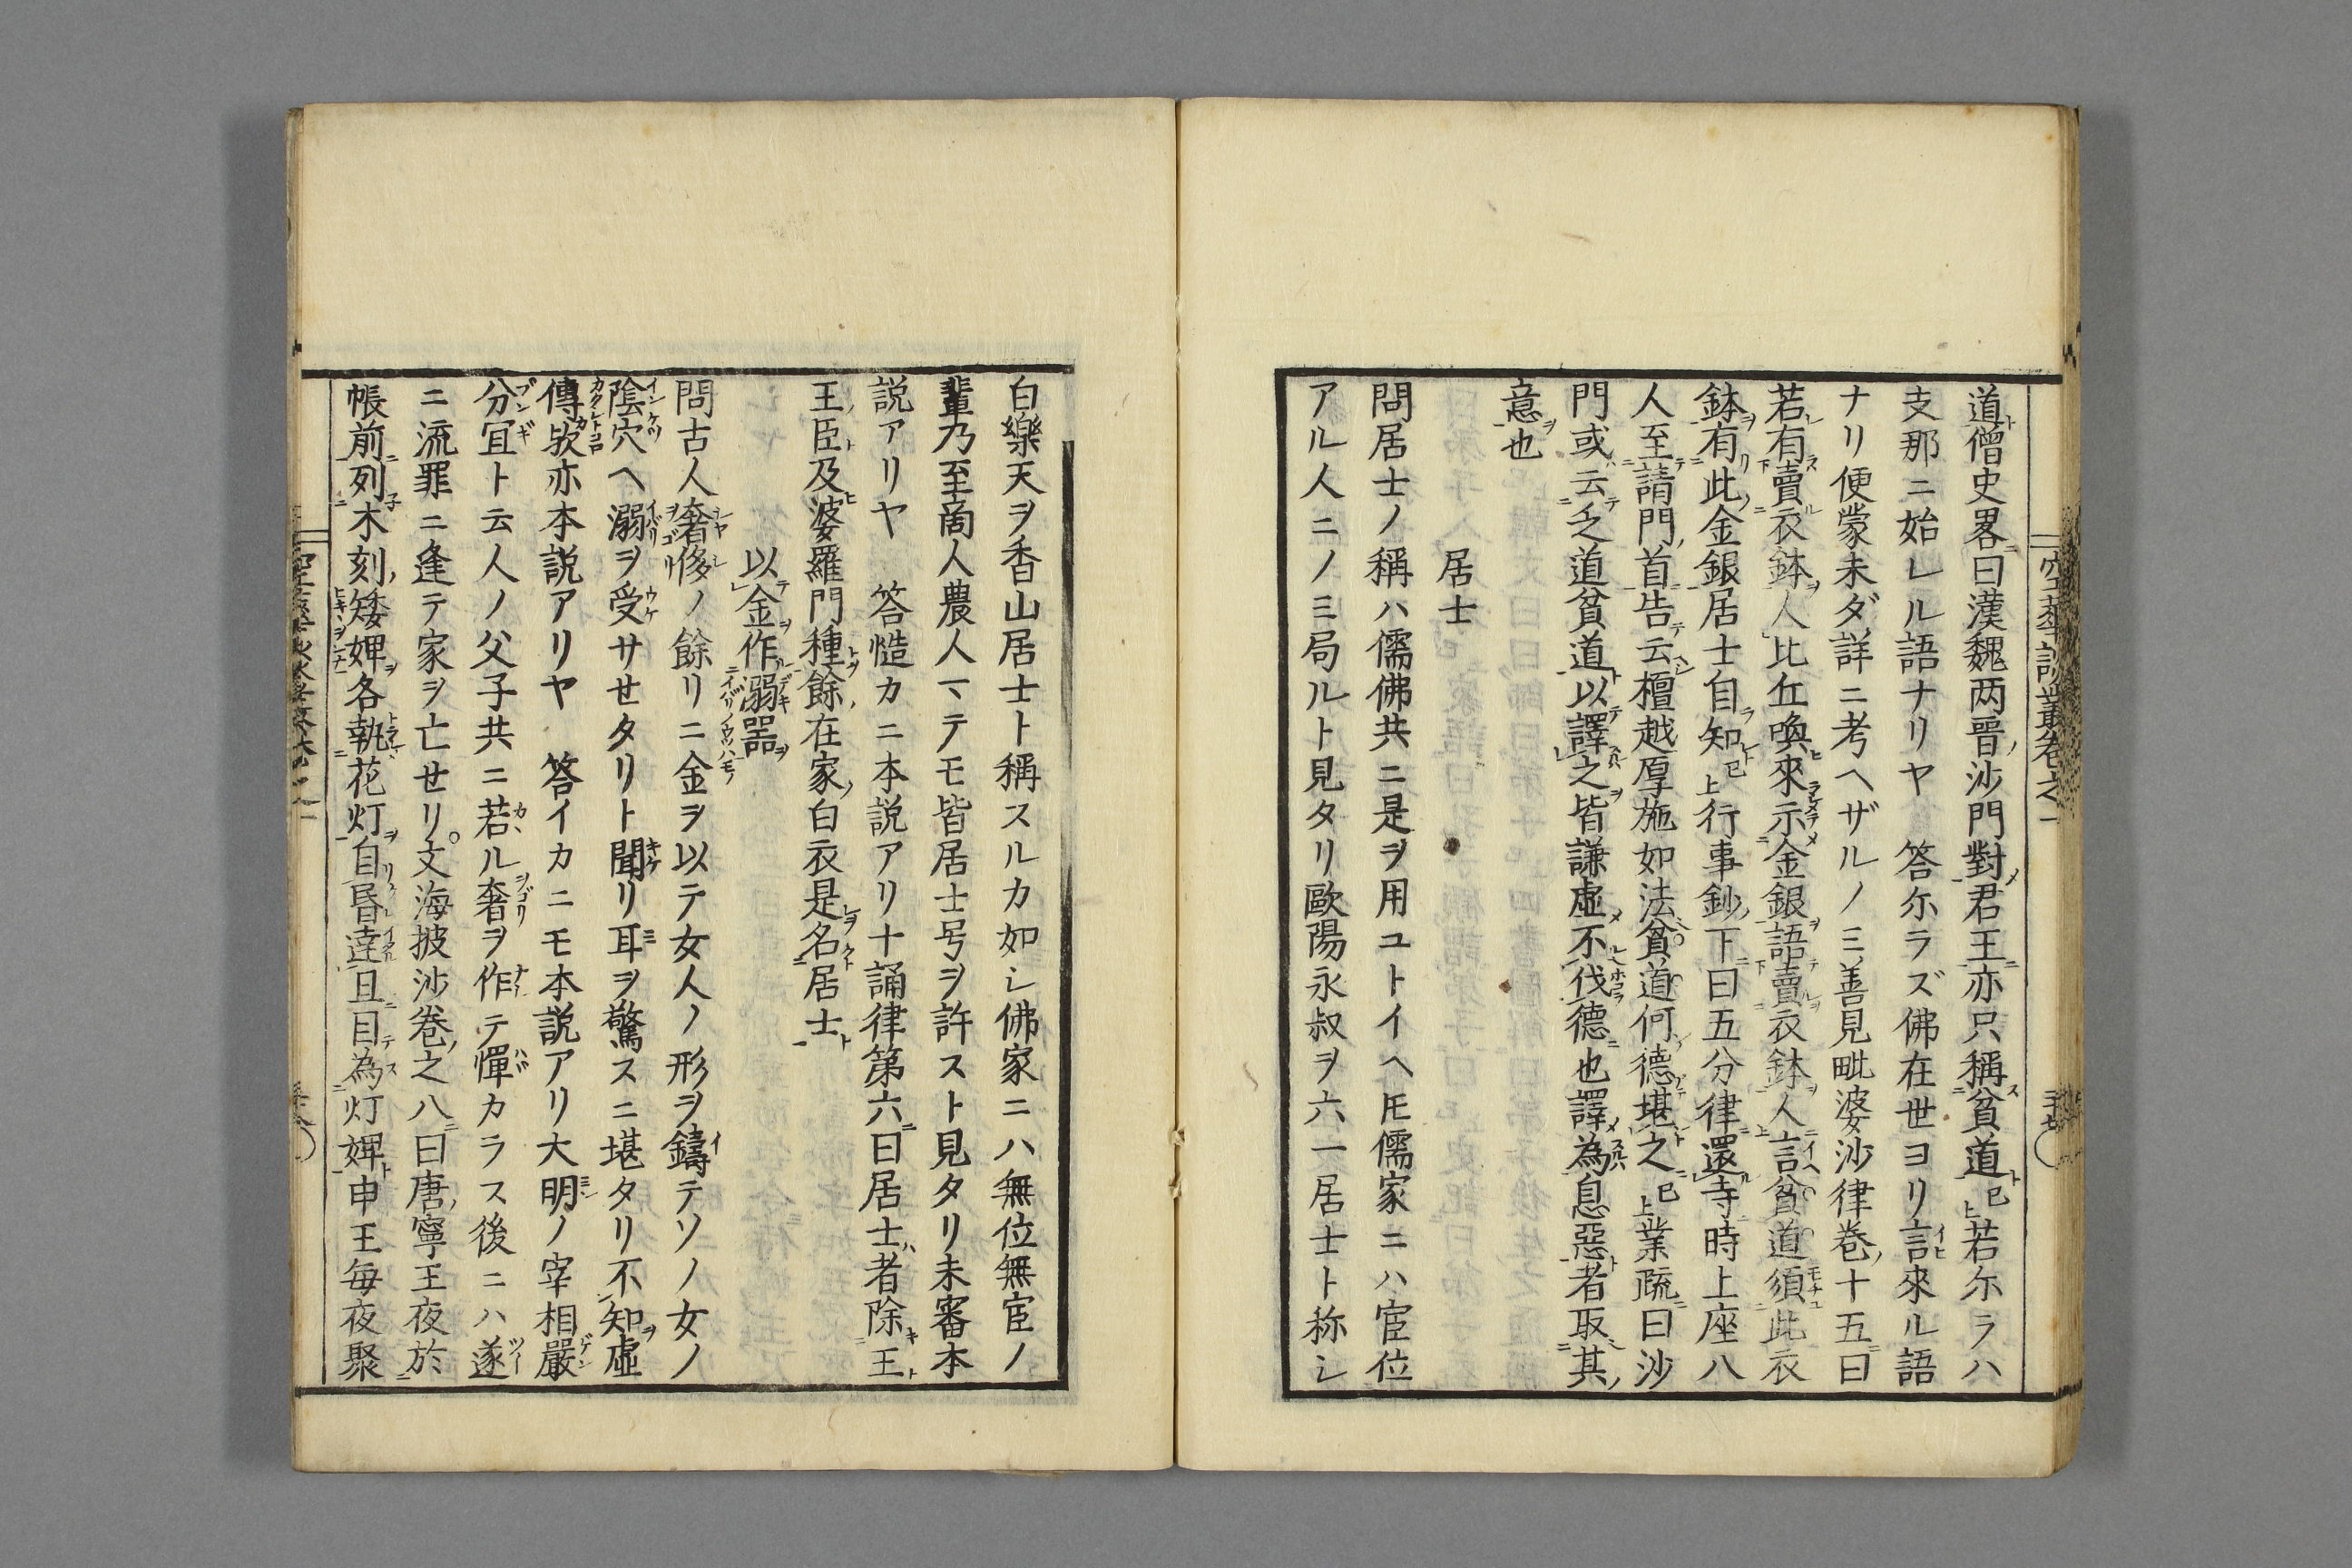 道僧史畧曰漢魏两晋沙門對君王亦只稱貧道已上若尓ラハ
支那ニ始レル語ナリヤ　答尓ラズ佛在世ヨリ言來ル語
ナリ便蒙未ダ詳ニ考ヘザルノミ善見毗婆沙律卷十五曰
若有賣衣鉢人比丘喚來示金銀語賣衣鉢人言貧道須此衣
鉢有此金銀居士自知已上行事鈔下曰五分律還寺時上座八
人至請門首告云檀越厚施如法貧道何德堪之已上業疏曰沙
門或云乏道貧道以譯之皆謙虛不伐德也譯為息惡者取其
意也
居士
問居士ノ稱ハ儒佛共ニ是ヲ用ユトイヘ𪜈儒家ニハ宦位
アル人ニノミ局ルト見タリ歐陽永叔ヲ六一居士ト称シ
白樂天ヲ香山居士ト稱スルカ如シ佛家ニハ無位無宦ノ
輩乃至啇人農人マテモ皆居士号ヲ許スト見タリ未審本
説アリヤ　答慥カニ本説アリ十誦律第六曰居士者除王
王臣及婆羅門種餘在家白衣是名居士
以金作溺噐
問古人奢侈ノ餘リニ金ヲ以テ女人ノ形ヲ鑄テソノ女ノ
陰穴ヘ溺ヲ受サセタリト聞リ耳ヲ驚スニ堪タリ不知虛
傳欤亦本説アリヤ　答イカニモ本説アリ大明ノ宰相嚴
分冝ト云人ノ父子共ニ若ル奢ヲ作テ憚カラス後ニハ遂
ニ流罪ニ逢テ家ヲ亡セリ。文海披沙卷之八曰唐寧王夜於
帳前列木刻矮婢各執花灯自昏達旦目為灯婢申王毎夜聚
空華談叢卷之一